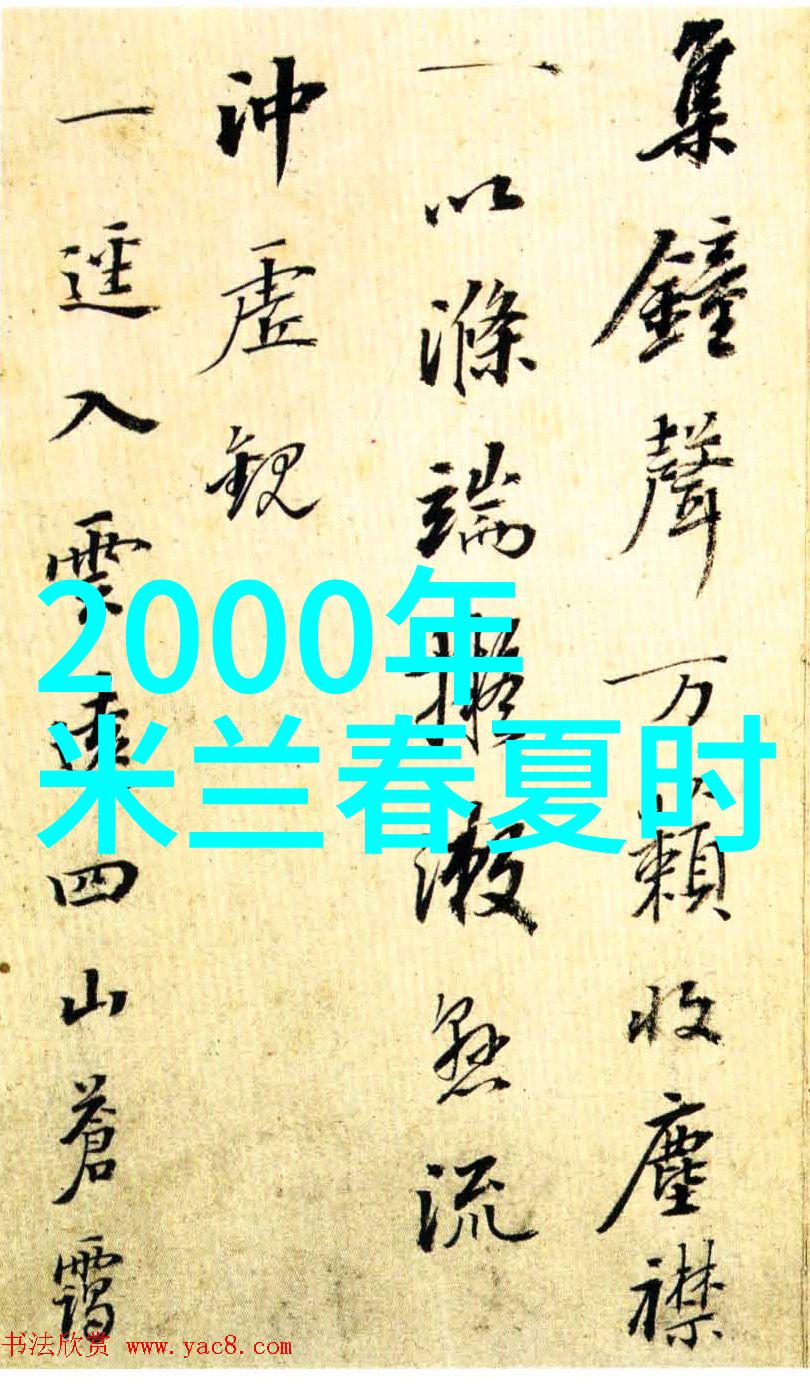 集鐘聲万籟收塵襟
一以滌端擬漱懸流
沖虛觀
一逕入雲遠四山蒼靄
2000年
米兰春夏时
书法欣赏 www.yac8.com